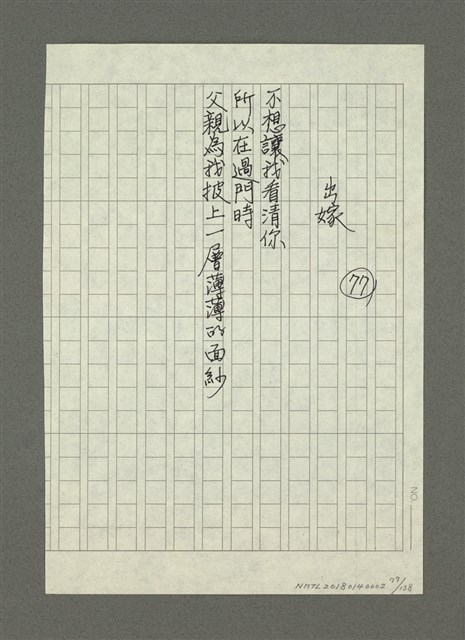 出嫁
77
不想讓我看清你
所以在過門時
父親為我披上一層薄薄的面紗
NO.
NMTL20180140002
77/138